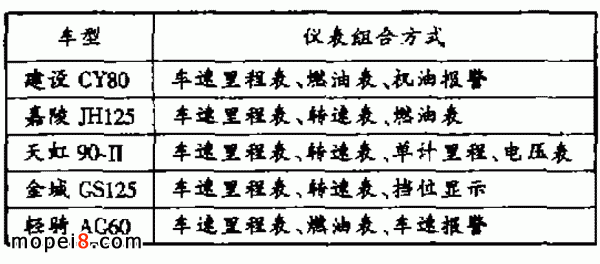 车型 仪表组合方式
建设 CY80 车速里程表、燃油表、机油报警
嘉陵 JH125 车速里程表、转速表、燃油表
天虹 90-Ⅱ 车速里程表、转速表、单计里程、电压表
金城 GS125 车速里程表、转速表、挡位显示
轻骑 AG60 车速里程表、燃油表、车速报警
mopei8.com